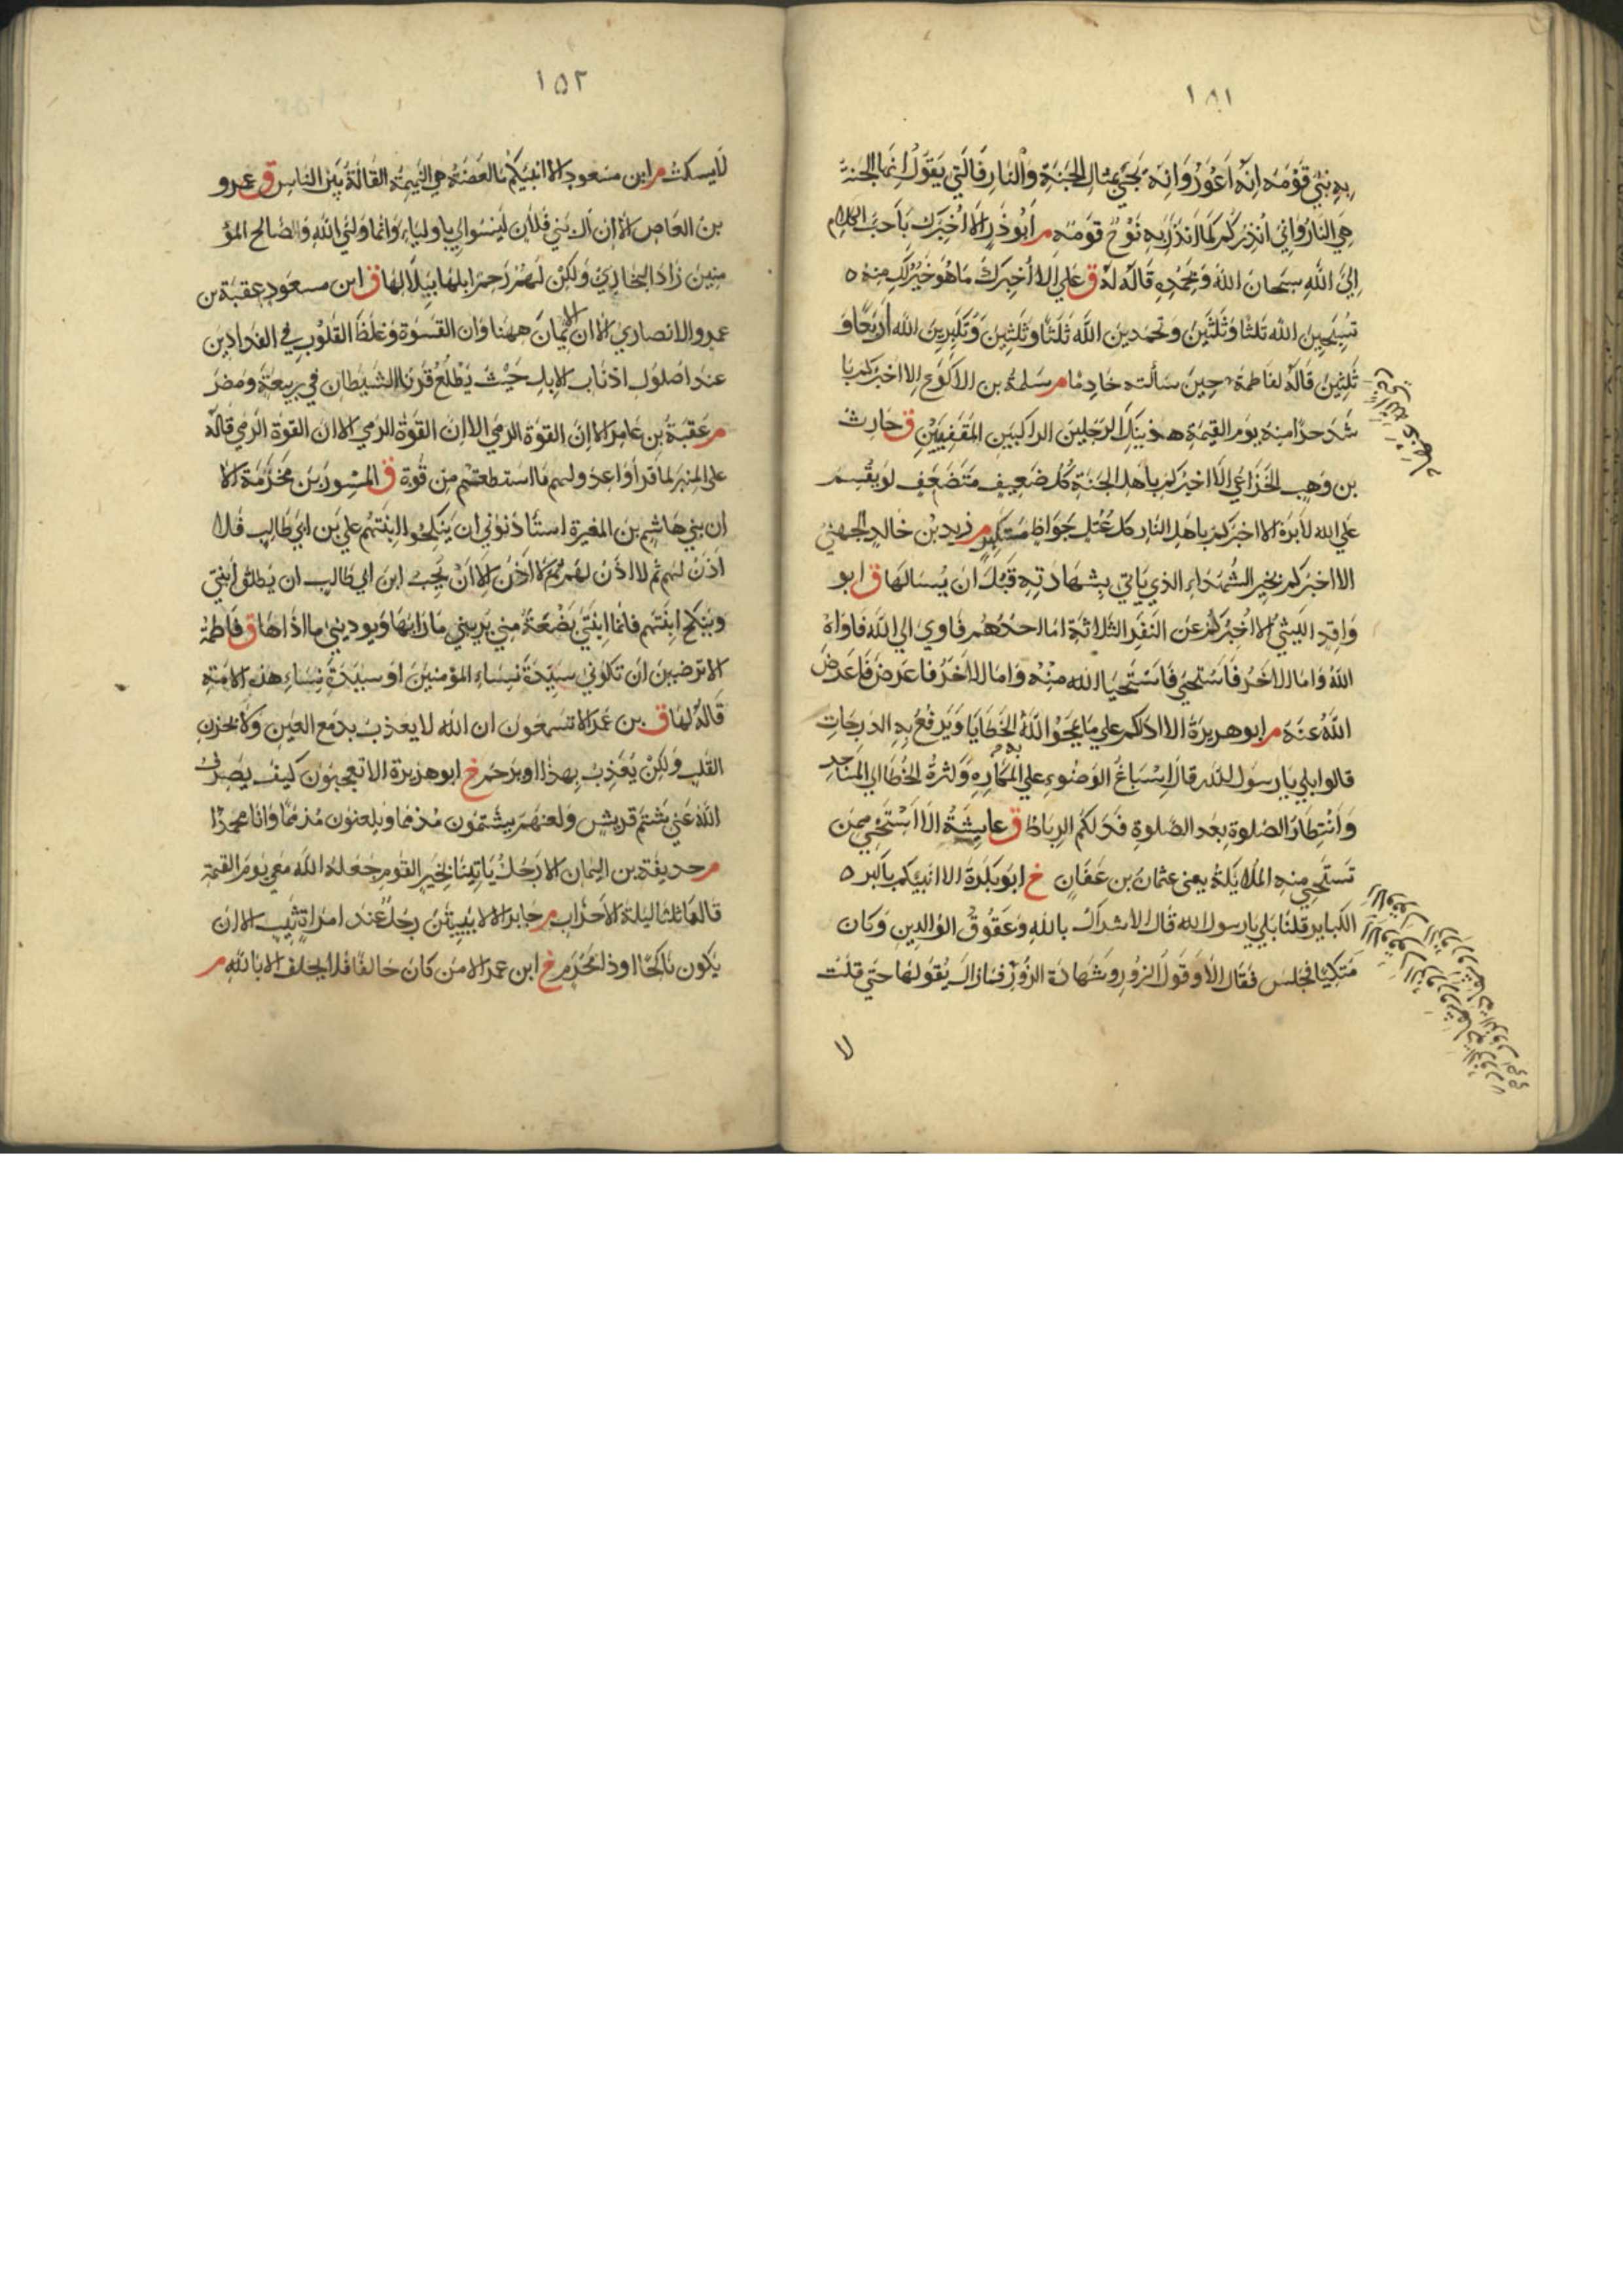 ١٥١
به نبي قومه انه اعور وانه يجيء بمثال الجنة والنار فالتي يقول انها الجنة
هي النار واني انذركم كما انذر به نوح قومه م ابو ذر الا اخبرك باحب الكلام
الي الله سبحان الله وبحمده قاله له ق علي الا اخبرك ما هو خير لك منه
تسبحين الله ثلثا وثلثين وتحمدين الله ثلثا وثلثين وتكبرين الله اربعا و
ثلثين قاله لفاطمة حين سألته خادما م سلمة بن الاكوع الا اخبركم با
شد حرا منه يوم القيمة هذينك الرجلين الراكبين المقفيين ق حارث
بن وهب الخزاعي الا اخبركم باهل الجنة كل ضعيف متضعف لو يقسم
علي الله لابره الا اخبركم باهل النار كل عتل جواظ مستكبر م زيد بن خالد الجهني
الا اخبركم بخير الشهداء الذي ياتي بشهادته قبل ان يسالها ق ابو
واقد الليثي الا اخبركم عن النفر الثلاثة اما احدهم فاوي الي الله فاواه
الله واما الاخر فاستحيي فاستحيا الله منه واما الاخر فاعرض فاعرض
الله عنه م ابو هريرة الا ادلكم علي ما يمحو الله الخطايا ويرفع به الدرجات
قالوا بلي يا رسول الله قال اسباغ الوضوء علي المكاره وكثرة الخطا الي المساجد
وانتظار الصلوة بعد الصلوة فذلكم الرباط ق عايشة الا استحيي ممن
تستحيي منه الملايكة يعني عثمان بن عفان خ ابو بكرة الا انبيكم باكبر
الكباير قلنا بلي يا رسول الله قال الاشراك بالله وعقوق الوالدين وكان
متكيا فجلس فقال الا وقول الزور وشهادة الزور فما زال يقولها حتي قلت
لا
١٥٢
لا يسكت م ابن مسعود الا انبيكم ما العضه هي النميمة القالة بين الناس ق عمرو
بن العاص الا ان ال بني فلان ليسوا لي باولياء وانما وليي الله وصالح المؤ
منين زاد البخاري ولكن لهم رحم ابلها ببلالها ق ابن مسعود عقبة بن
عمرو الانصاري الا ان الايمان ههنا وان القسوة وغلظ القلوب في الفدادين
عند اصول اذناب الابل حيث يطلع قرنا الشيطان في ربيعة ومضر
م عقبة بن عامر الا ان القوة الرمي الا ان القوة الرمي الا ان القوة الرمي قاله
علي المنبر لما قرأ واعدوا لهم ما استطعتم من قوة ق المسور بن مخرمة الا
ان بني هاشم بن المغيرة استأذنوني ان ينكحوا ابنتهم علي بن ابي طالب فلا
اذن لهم ثم لا اذن لهم ثم لا اذن الا ان يحب ابن ابي طالب ان يطلق ابنتي
وينكح ابنتهم فانما ابنتي بضعة مني يريبني ما رابها ويوذيني ما اذاها ق فاطمة
الا ترضين ان تكوني سيدة نساء المؤمنين او سيدة نساء هذه الامة
قاله لها ق بن عمر الا تسمعون ان الله لا يعذب بدمع العين ولا بحزن
القلب ولكن يعذب بهذا او يرحم خ ابو هريرة الا تعجبون كيف يصرف
الله عني شتم قريش ولعنهم يشتمون مذمما ويلعنون مذمما وانا محمدا
م حذيفة بن اليمان الا رجل ياتينا بخير القوم جعله الله معي يوم القيمة
قالها ثلثا ليلة الاحزاب م جابر الا لا يبيتن رجل عند امراة ثيب الا ان
يكون ناكحا او ذا محرم خ ابن عمر الا من كان حالفا فلا يحلف الا بالله م